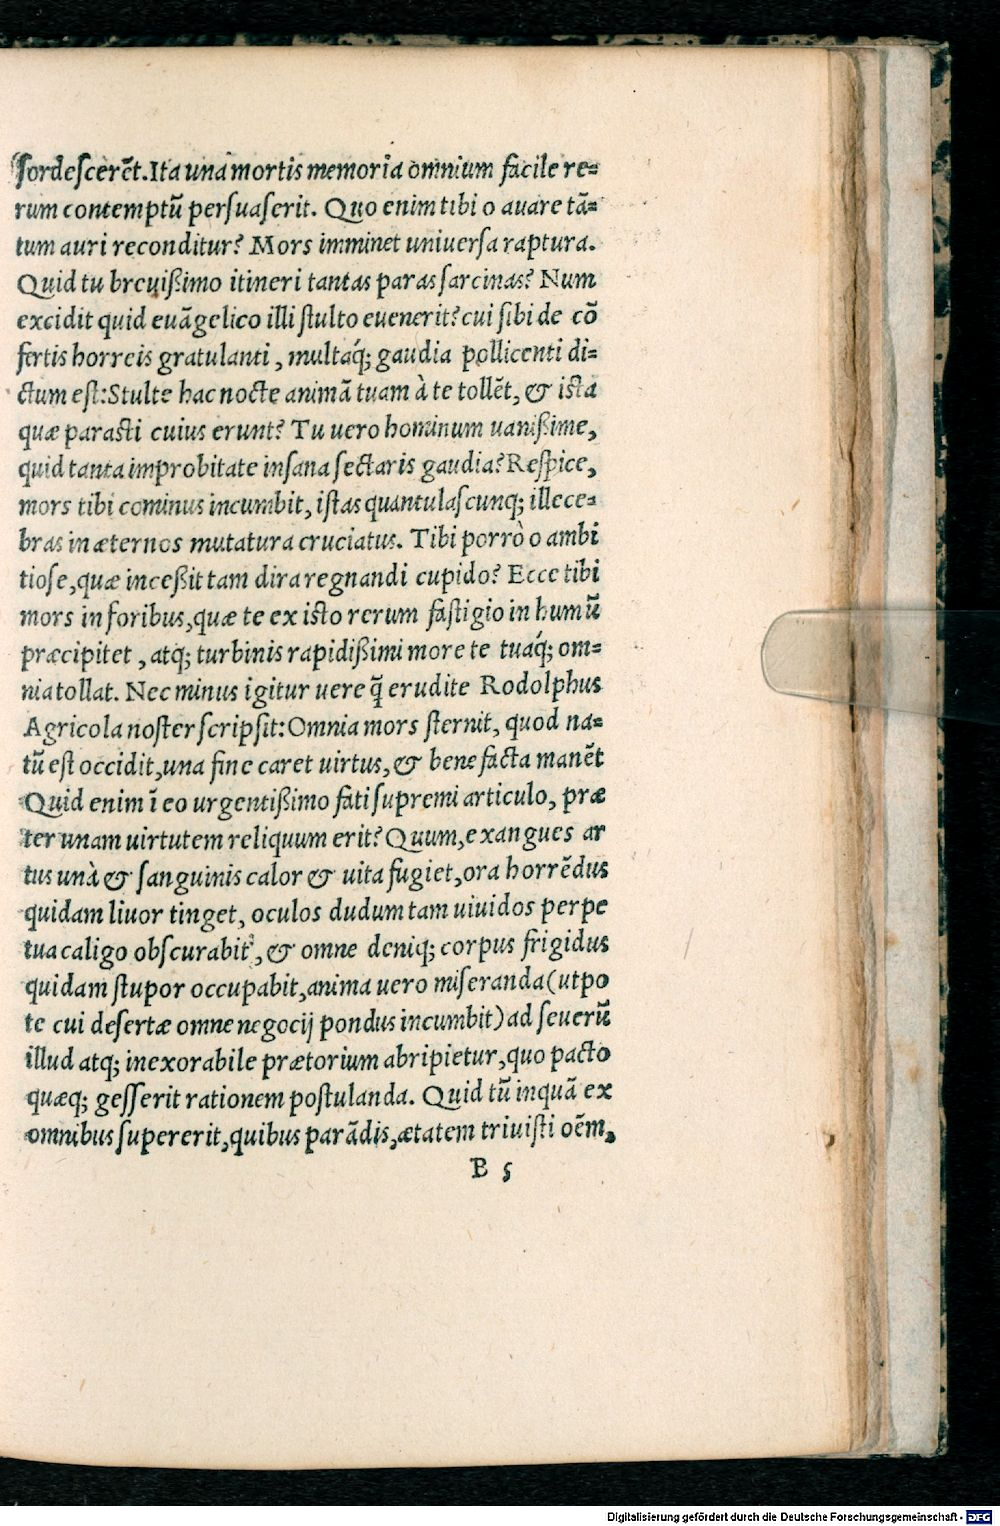 ſordeſcerẽt. Ita una mortis memoria omnium facile re=
rum contemptũ perſuaſerit. Quo enim tibi o auare tã=
tum auri reconditur? Mors imminet uniuerſa raptura.
Quid tu breuißimo itineri tantas paras ſarcinas? Num
excidit quid euãgelico illi ſtulto euenerit? cui ſibi de cõ
fertis horreis gratulanti, multaq́; gaudia pollicenti di=
ctum eſt: Stulte hac nocte animã tuam à te tollẽt, & iſta
quæ paraſti cuius erunt? Tu uero hominum uanißime,
quid tanta improbitate inſana ſectaris gaudia? Reſpice,
mors tibi cominus incumbit, iſtas quantulaſcunq; illece=
bras in æternos mutatura cruciatus. Tibi porrò o ambi
tioſe, quæ inceßit tam dira regnandi cupido? Ecce tibi
mors in foribus, quæ te ex iſto rerum faſtigio in humũ
præcipitet, atq; turbinis rapidißimi more te tuaq́; om=
nia tollat. Nec minus igitur uere q̃ erudite Rodolphus
Agricola noſter ſcripſit: Omnia mors ſternit, quod na=
tũ eſt occidit, una fine caret uirtus, & bene facta manẽt
Quid enim ĩ eo urgentißimo fati ſupremi articulo, præ
ter unam uirtutem reliquum erit? Quum, exangues ar
tus unà & ſanguinis calor & uita fugiet, ora horrẽdus
quidam liuor tinget, oculos dudum tam uiuidos perpe
tua caligo obſcurabit, & omne deniq; corpus frigidus
quidam ſtupor occupabit, anima uero miſeranda (utpo
te cui deſertæ omne negocij pondus incumbit) ad ſeuerũ
illud atq; inexorabile prætorium abripietur, quo pacto
quæq; geſſerit rationem poſtulanda. Quid tũ inquã ex
omnibus ſupererit, quibus parãdis, ætatem triuiſti oẽm,
B 5
Digitalisierung gefördert durch die Deutsche Forschungsgemeinschaft - DFG